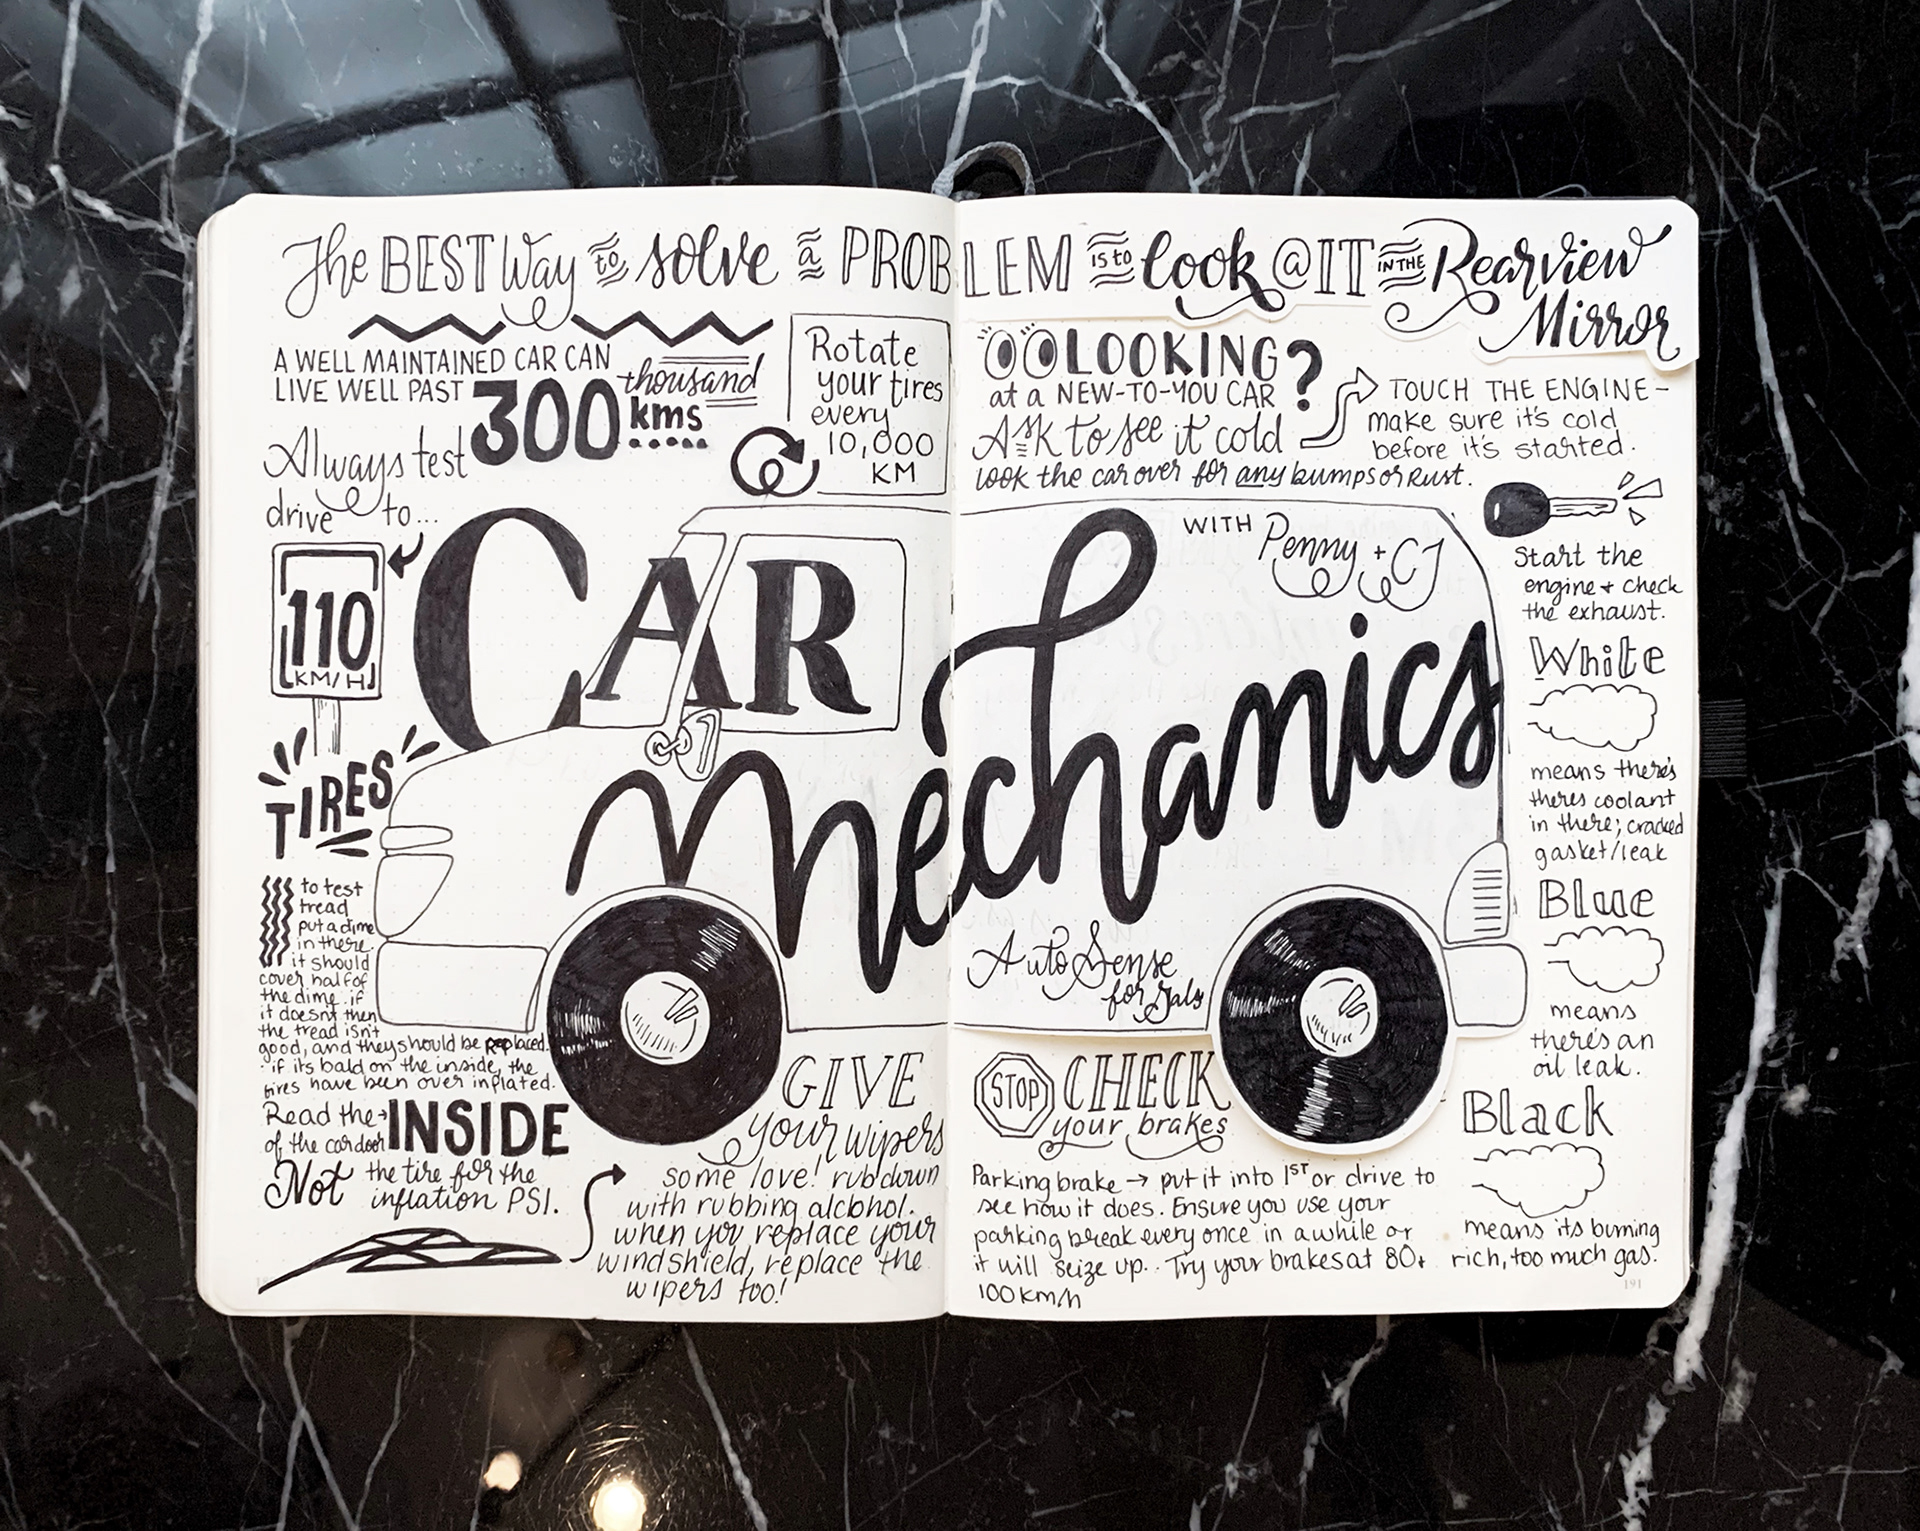 The BEST Way to solve a PROBLEM IS to look @ IT IN THE Rearview
Mirror
A WELL MAINTAINED CAR CAN
LIVE WELL PAST 300 thousand
kms
Always test
drive to...
110
KM/H
Rotate
your tires
every
10,000
KM
TIRES
to test
tread
put a dime
in there.
it should
cover half of
the dime. if
it doesn't then
the tread isn't
good, and they should be replaced.
if its bald on the inside, the
tires have been over inflated.
Read the INSIDE
of the car door
Not the tire for the
inflation PSI.
CAR
Mechanics
WITH Penny + CJ
AutoSense
for Gals
GIVE
your wipers
some love! rub down
with rubbing alcohol.
when you replace your
windshield, replace the
wipers too!
LOOKING?
at a NEW-TO-YOU CAR
ASK to see it cold
TOUCH THE ENGINE-
make sure it's cold
before it's started.
look the car over for any bumps or Rust.
Start the
engine + check
the exhaust.
White
means there's
theres coolant
in there; cracked
gasket/leak
Blue
means
there's an
oil leak.
Black
means its burning
rich, too much gas.
STOP CHECK
your brakes
Parking brake → put it into 1ST or drive to
see how it does. Ensure you use your
parking break every once in a while or
it will seize up.. Try your brakes at 80+
100 km/h
191